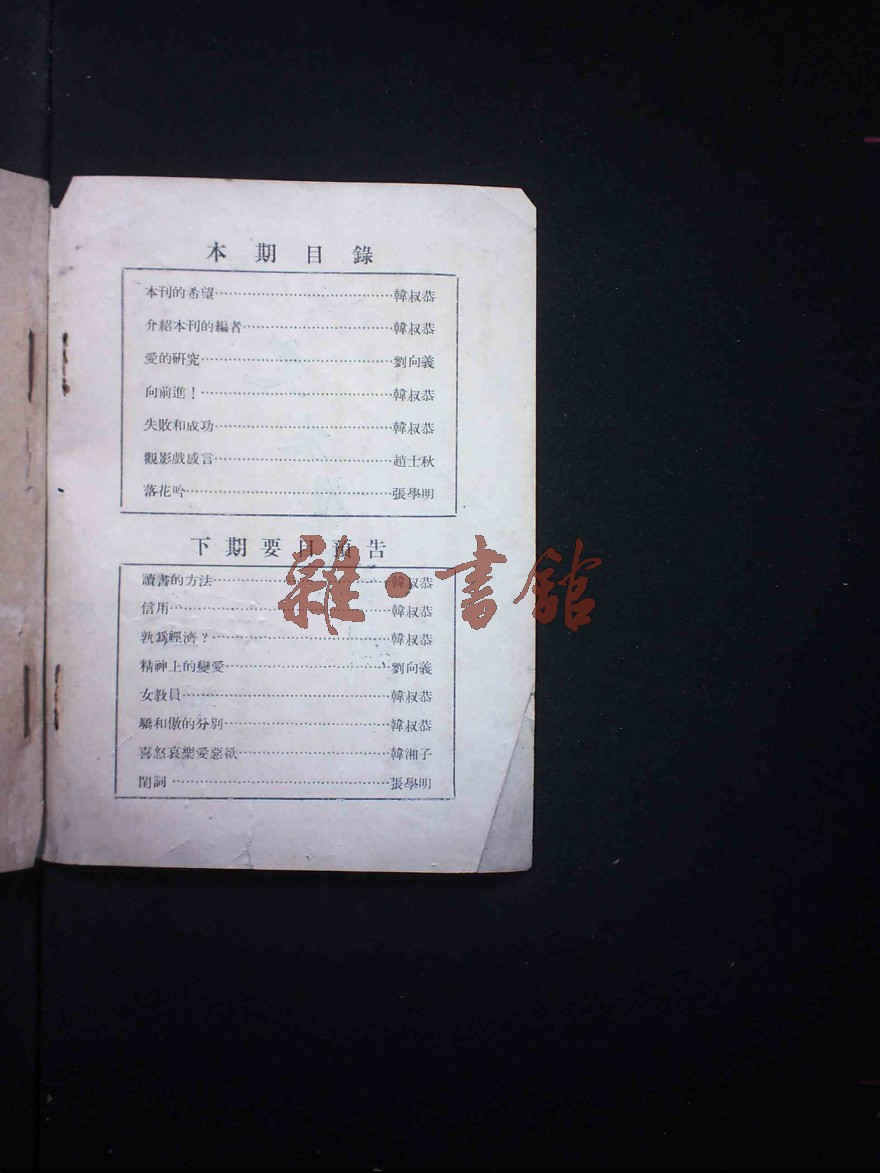 本期目錄
本刊的希望……………………………韓叔恭
介紹本刊的編者………………………韓叔恭
愛的研究………………………………劉向義
向前進！………………………………韓叔恭
失敗和成功……………………………韓叔恭
觀影戲感言……………………………趙士秋
落花吟…………………………………張學明
下期要目預告
讀書的方法……………………………韓叔恭
信用……………………………………韓叔恭
孰爲經濟？……………………………韓叔恭
精神上的變愛…………………………劉向義
女教員…………………………………韓叔恭
驕和傲的分別…………………………韓叔恭
喜怒哀樂愛惡欲………………………韓湘子
閨詞……………………………………張學明
雜·書館